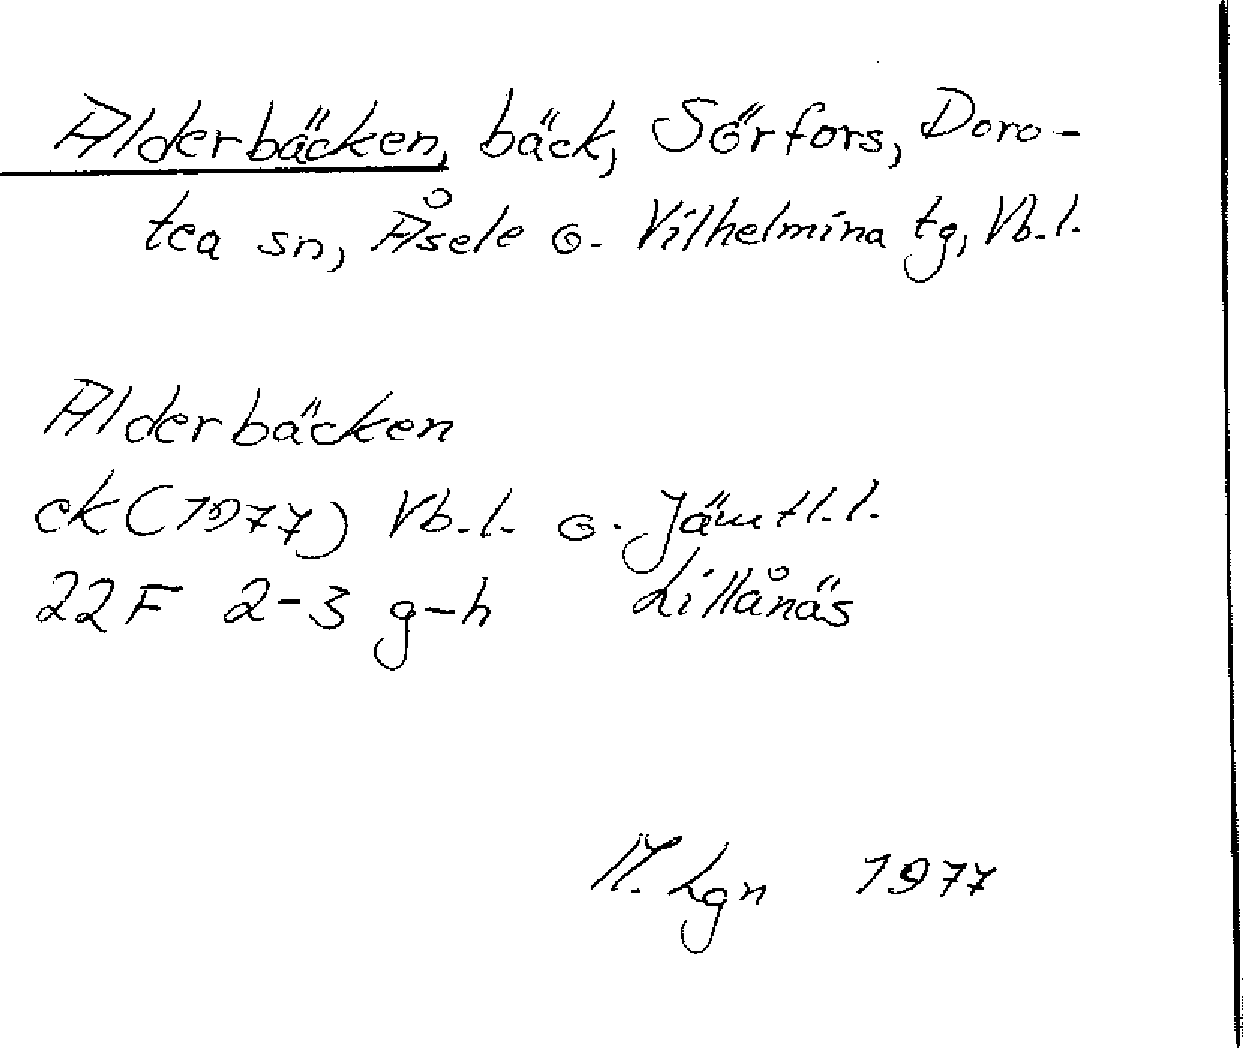 Alderbäcken, bäck, Sörfors, Doro-
tea sn, Åsele o. Vilhelmina tg, Vb.l.
Alderbäcken
ek (1977) Vb.l. o. Jämtl.l.
22F 2-3 g-h Lillånäs
M. Lgn 1977